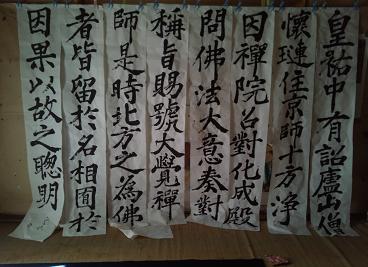 皇祐中有詔廬山僧
懷璉住京師十方淨
因禪院召對化成殿
問佛法大意奏對
稱旨賜號大覺禪
師是時北方之為佛
者皆留於名相囿於
因果以故之聰明